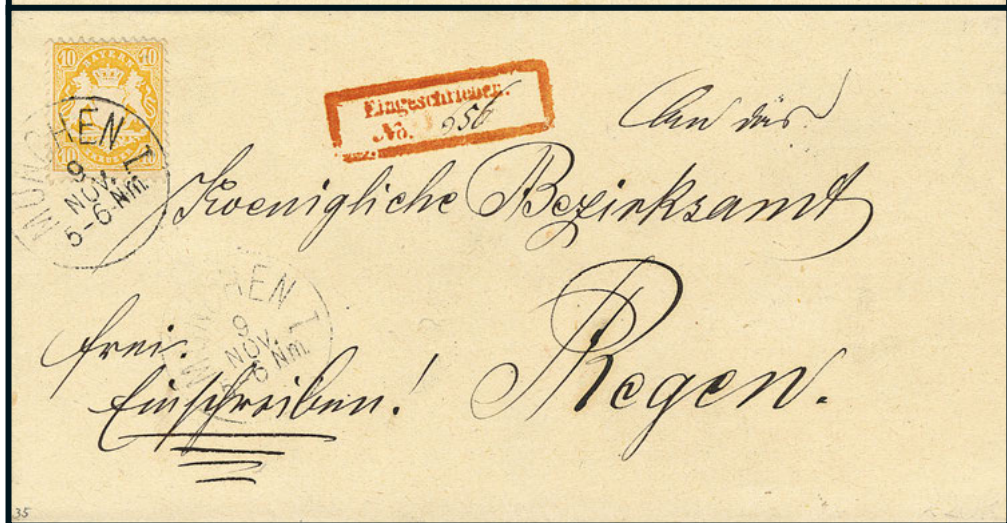 10 BAYERN 10
10 KREUZER 10
MÜNCHEN I.
9
NOV.
5-6 Nm.
Eingeschrieben.
No. 656
An das
Koenigliche Bezirksamt
Regen.
MÜNCHEN I.
9
NOV.
5-6 Nm.
frei.
Einschreiben!
35